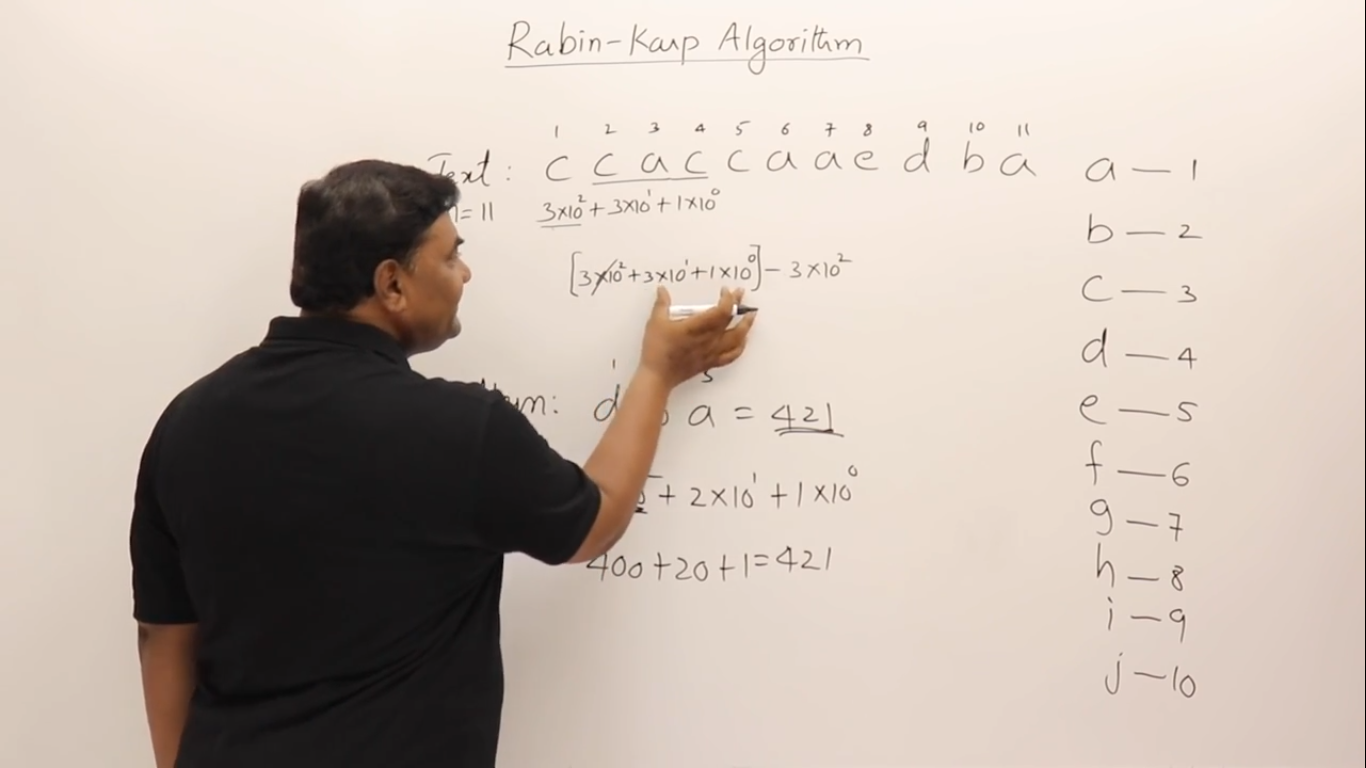 Rabin-Karp Algorithm
1 2 3 4 5 6 7 8 9 10 11
Text: c c a c c a a e d b a
= 11 3×10² + 3×10¹ + 1×10⁰
[3×10² + 3×10¹ + 1×10⁰] - 3×10²
1 3
d a = 421
+ 2×10¹ + 1×10⁰
400 + 20 + 1 = 421
a — 1
b — 2
c — 3
d — 4
e — 5
f — 6
g — 7
h — 8
i — 9
j — 10